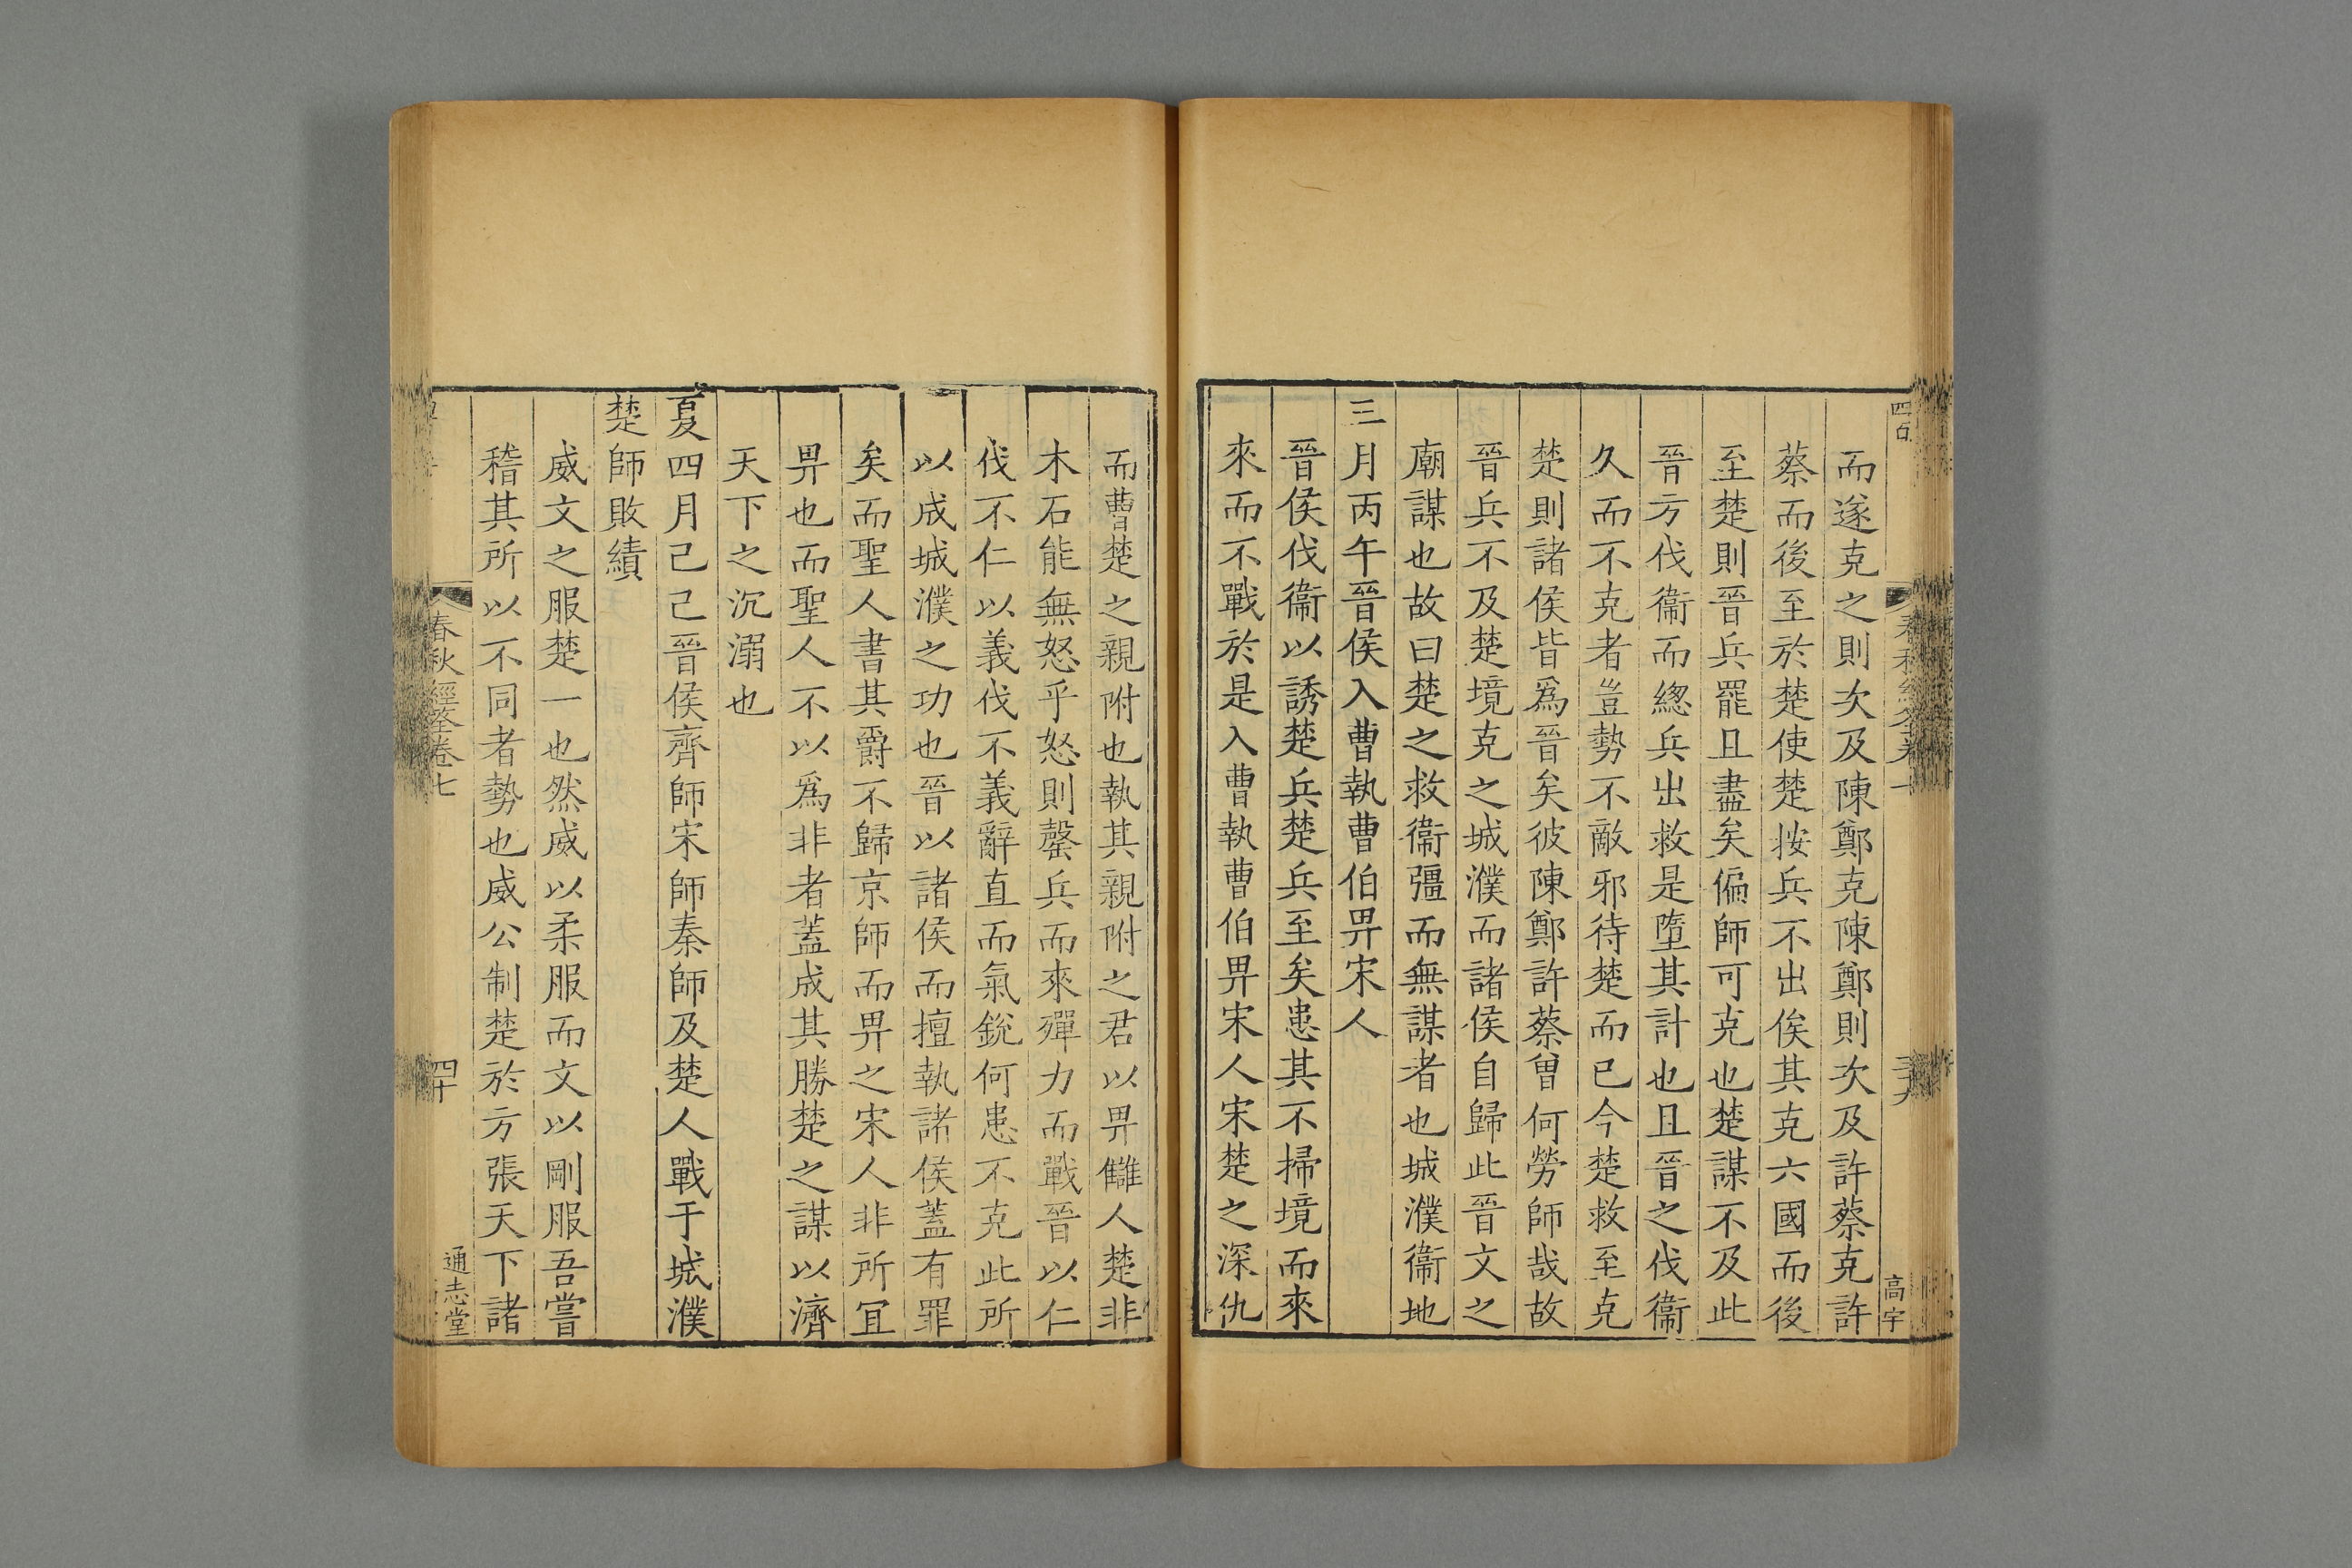 而遂克之則次及陳鄭克陳鄭則次及許蔡克許
蔡而後至於楚使楚按兵不出俟其克六國而後
至楚則晉兵罷且盡矣偏師可克也楚謀不及此
晉方伐衞而緫兵出救是墮其計也且晉之伐衞
久而不克者豈勢不敵邪待楚而已今楚救至克
楚則諸侯皆爲晉矣彼陳鄭許蔡曾何勞師哉故
晉兵不及楚境克之城濮而諸侯自歸此晉文之
廟謀也故曰楚之救衞彊而無謀者也城濮衞地
三月丙午晉侯入曹執曹伯畀宋人
晉侯伐衞以誘楚兵楚兵至矣患其不掃境而來
來而不戰於是入曹執曹伯畀宋人宋楚之深仇
高宇
而曹楚之親附也執其親附之君以畀讎人楚非
木石能無怒乎怒則罄兵而來殫力而戰晉以仁
伐不仁以義伐不義辭直而氣銳何患不克此所
以成城濮之功也晉以諸侯而擅執諸侯蓋有罪
矣而聖人書其爵不歸京師而畀之宋人非所宜
畀也而聖人不以爲非者蓋成其勝楚之謀以濟
天下之沉溺也
夏四月己己晉侯齊師宋師秦師及楚人戰于城濮
楚師敗績
威文之服楚一也然威以柔服而文以剛服吾嘗
稽其所以不同者勢也威公制楚於方張天下諸
春秋經筌卷七
四十
通志堂